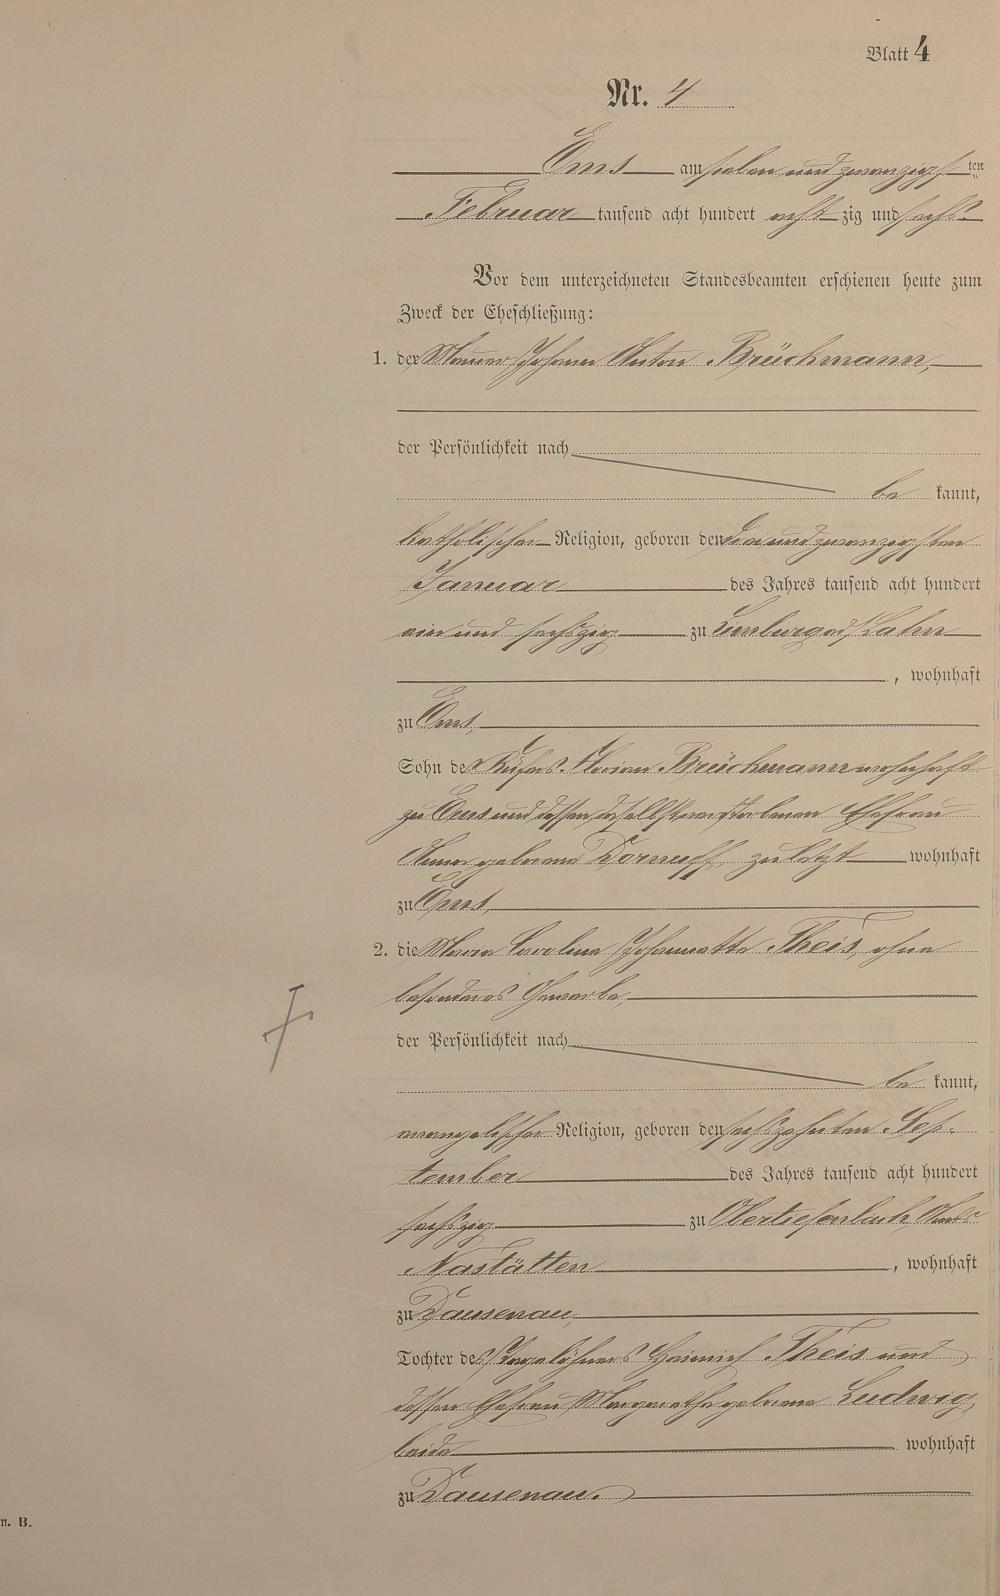 Blatt 4
Nr. 4
Ems am sieben und zwanzigsten
Februar tausend acht hundert achtzig und sechs.
Vor dem unterzeichneten Standesbeamten erschienen heute zum
Zweck der Eheschließung:
1. der Maurer Johann Anton Brüchmann,
der Persönlichkeit nach
be kannt,
katholischer Religion, geboren den drei und zwanzigsten
Januar des Jahres tausend acht hundert
ein und sechszig zu Limburg a/d Lahn
, wohnhaft
zu Ems,
Sohn des Küfers Brüchmann wohnhaft
zu Ems und dessen daselbst verstorbenen Ehefrau
Anna geborene Dorneuff, zuletzt wohnhaft
zu Ems,
2. die Maria Carolina Johannette Theis, ohne
besonderes Gewerbe,
der Persönlichkeit nach
be kannt,
evangelischer Religion, geboren den sechszehnten Sep-
tember des Jahres tausend acht hundert
sechszig zu Obertiefenbach, Amts
Nastätten , wohnhaft
zu Dausenau,
Tochter des Tagelöhners Heinrich Theis und
dessen Ehefrau Margarethe geborene Ludwig
beide wohnhaft
zu Dausenau.
n. B.